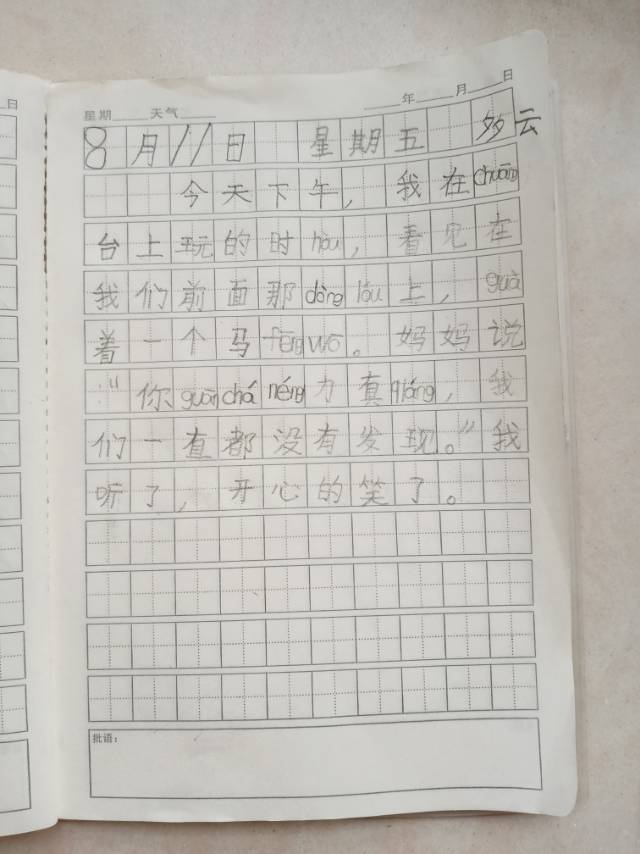 日
星期 天气 年 月 日
8月11日 星期五 多云
今天下午，我在chuāng
台上玩的时hòu，看见在
我们前面那dòng lóu上，guà
着一个马fēng wō。妈妈说
：“你guān chá néng力真qiáng，我
们一直都没有发现。”我
听了，开心的笑了。
批语：